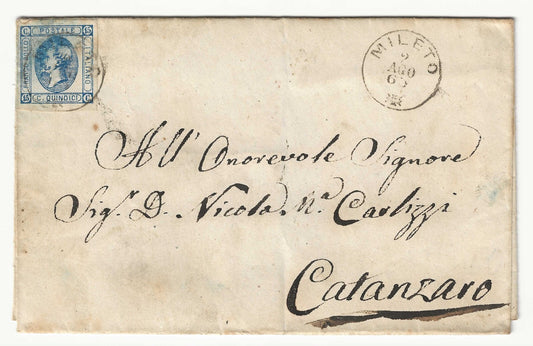 POSTALE
ITALIANO
C. QUINDICI
15 C
MILETO
2
AGO
All' Onorevole Signore
Sig.r D. Nicola N.a Carlizzi
Catanzaro